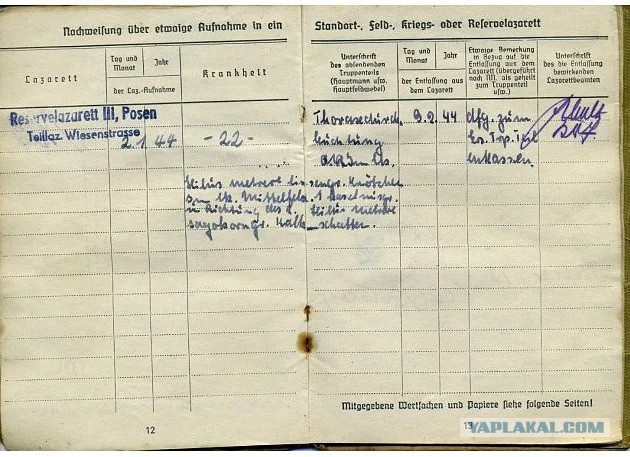 Nachweisung über etwaige Aufnahme in ein
Standort-, Feld-, Kriegs- oder Reservelazarett
Lazarett
Tag und Monat
Jahr
der Laz.-Aufnahme
Krankheit
Unterschrift
des absendenden
Truppenteils
(Hauptmann usw.
Hauptfeldwebel)
Tag und Monat
Jahr
der Entlassung aus
dem Lazarett
Etwaige Bemerkung
in Bezug auf die
Entlassung aus dem
Lazarett (übergeführt
nach NN. als geheilt
zum Truppenteil
usw.)
Unterschrift
des die Entlassung
bewirkenden
Lazarettbeamten
Reservelazarett III, Posen
Teillaz. Wiesenstrasse
2.1 44 -22-
9.2. 44 dfg. zum
Ers. Trp. Teil
entlassen.
Hilus mehrere linsengr.
im lk. Mittelfeld. 1 haselnußgr.
in Richtung des Hilus mehrere
sagokorngr. Kalkschatten.
Mitgegebene Wertsachen und Papiere siehe folgende Seiten!
12
13
YAPLAKAL.COM